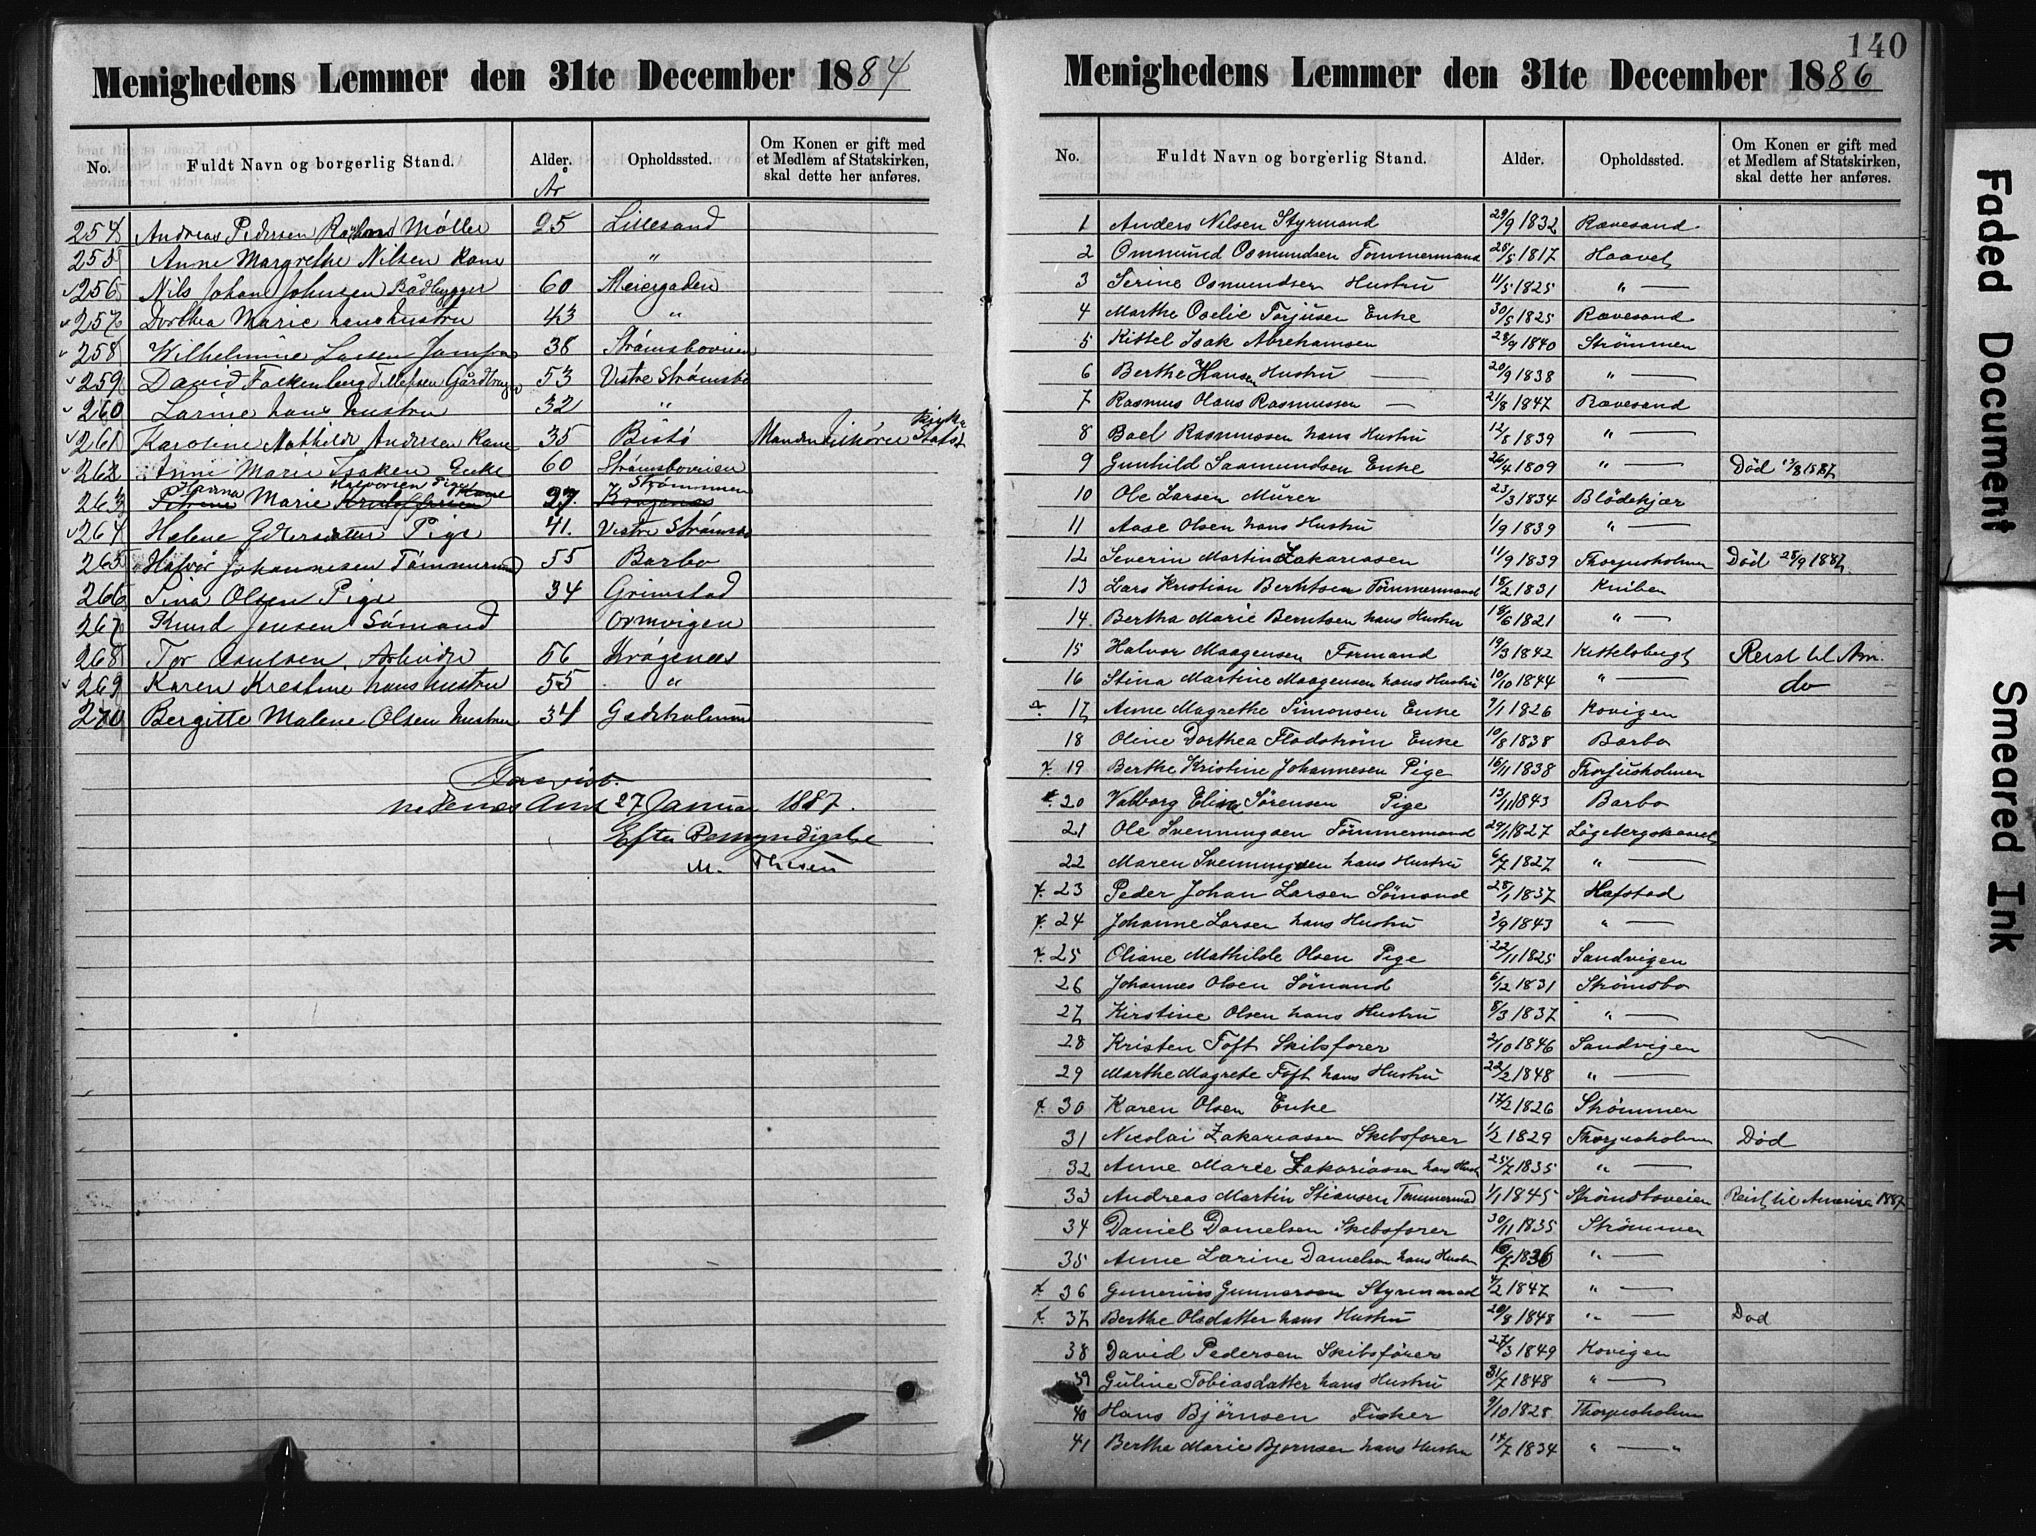 Menighedens Lemmer den 31te December 1884
No. Fuldt Navn og borgerlig Stand. Alder. Opholdssted. Om Konen er gift med et Medlem af Statskirken, skal dette her anføres.
År
254 Andreas Pedersen Møller 25 Lillesand
255 Anne Margrethe Nilsen Kone "
256 Nils Johan Johnsen Bådbygger 60
257 Dorthea Marie hans hustru 43 "
258 Wilhelmine Larsen Jomfru 38 Strømsboveien
259 David Falkenberg Tellefsen 53 Vestre Strømsbo
260 Larine hans hustru 32 "
261 Karoline Mathilde Andersen Kone 35 Bistø Manden tilhører Statsk
262 Anne Marie Isaksen Enke 60 Strømsboveien
263 Hanna Marie Halvorsen Pige 27. Strømmen
264 Helene Pige 41. Vestre Strømsbo
265 Halvor Johannesen Tømmermand 55 Barbo
266 Sina Olsen Pige 34 Grimstad
267 Knud Jensen Sømand Ormvigen
268 Tor Arbeider 56 Krøgenes
269 Karen Krestine hans hustru 55 "
270 Bergitte Malene Olsen hustru 34
Forevist.
Nedenes Amt 27 Januar 1887.
Efter Bemyndigelse
M. Thesen
140
Menighedens Lemmer den 31te December 1886
No. Fuldt Navn og borgerlig Stand. Alder. Opholdssted. Om Konen er gift med et Medlem af Statskirken, skal dette her anføres.
1 Anders Nilsen Styrmand 29/9 1832 Rævesand
2 Ommund Osmundsen Tømmermand 25/5 1817 Haavet
3 Serine Osmundsen Hustru 11/5 1825 " —
4 Marthe Oselie Torjusen Enke 30/5 1825 Rævesand
5 Kittel Isak Abrehamsen 28/9 1840 Strømmen
6 Berthe Hansen Hustru — 20/9 1838 " —
7 Rasmus Olaus Rasmussen — 21/8 1847 Rævesand
8 Boel Rasmussen hans Hustru 12/8 1839 " —
9 Gunhild Saamundsen Enke 26/4 1809 " — Død 1887
10 Ole Larsen Mürer 23/3 1834 Blødekjær
11 Aase Olsen hans Hustru 1/9 1839 " —
12 Severin Martin Zakariasen 11/9 1839 Thorjusholmen Død 25/9 1887
13 Lars Kristian Berntsen Tømmermand 18/2 1831 Kniben
14 Bertha Marie Berntsen hans Hustru 18/6 1821 " —
15 Halvor Maagensen Formand 19/3 1842 Kittelsbergt Reist til Am.
16 Stina Martine Maagensen hans Hustru 10/10 1844 " — do
17 Anne Magrethe Simonsen Enke 9/1 1826 Kovigen
18 Oline Dorthea Flodstrøm Enke 10/8 1838 Barbo
19 Berthe Kristine Johannesen Pige 16/11 1838 Thorjusholmen
20 Valborg Elise Sørensen Pige 13/11 1843 Barbo
21 Ole Svenningsen Tømmermand 29/1 1827
22 Maren Svenningsen hans Hustru 6/7 1827 " —
23 Peder Johan Larsen Sømand 28/1 1837 Hafstad
24 Johanne Larsen hans Hustru 3/9 1843 " —
25 Oliane Mathilde Olsen Pige 22/11 1825 Sandvigen
26 Johannes Olsen Sømand 6/12 1831 Strømsbo
27 Kirstine Olsen hans Hustru 8/3 1837 " —
28 Kristen Toft Skibsfører 2/10 1846 Sandvigen
29 Marthe Magrete Toft hans Hustru 22/2 1848 " —
30 Karen Olsen Enke 17/2 1826 Strømmen
31 Nicolai Zakariassen Skibsfører 1/2 1829 Thorjusholmen Død
32 Anne Marie Zakariassen hans Hust. 25/7 1835 " —
33 Andreas Martin Stiansen Tømmermand 1/1 1845 Strømsboveien Reist til Amerika 1887
34 Daniel Danielsen Skibsfører 30/11 1835 Strømmen
35 Anne Larine Danielsen hans Hustru 1836 " —
36 Gunerius Gunnarsen Styrmand 4/2 1847 " —
37 Berthe Olsdatter hans Hustru 20/8 1848 " — Død
38 David Pedersen Skibsfører 27/3 1849 Kovigen
39 Guline Tobiasdatter hans Hustru 31/7 1848 " —
40 Hans Bjørnsen Fisker 9/10 1828 Thorjusholmen
41 Berthe Marie Bjørnsen hans Hustru 14/7 1834 " — "
Faded Document
Smeared Ink